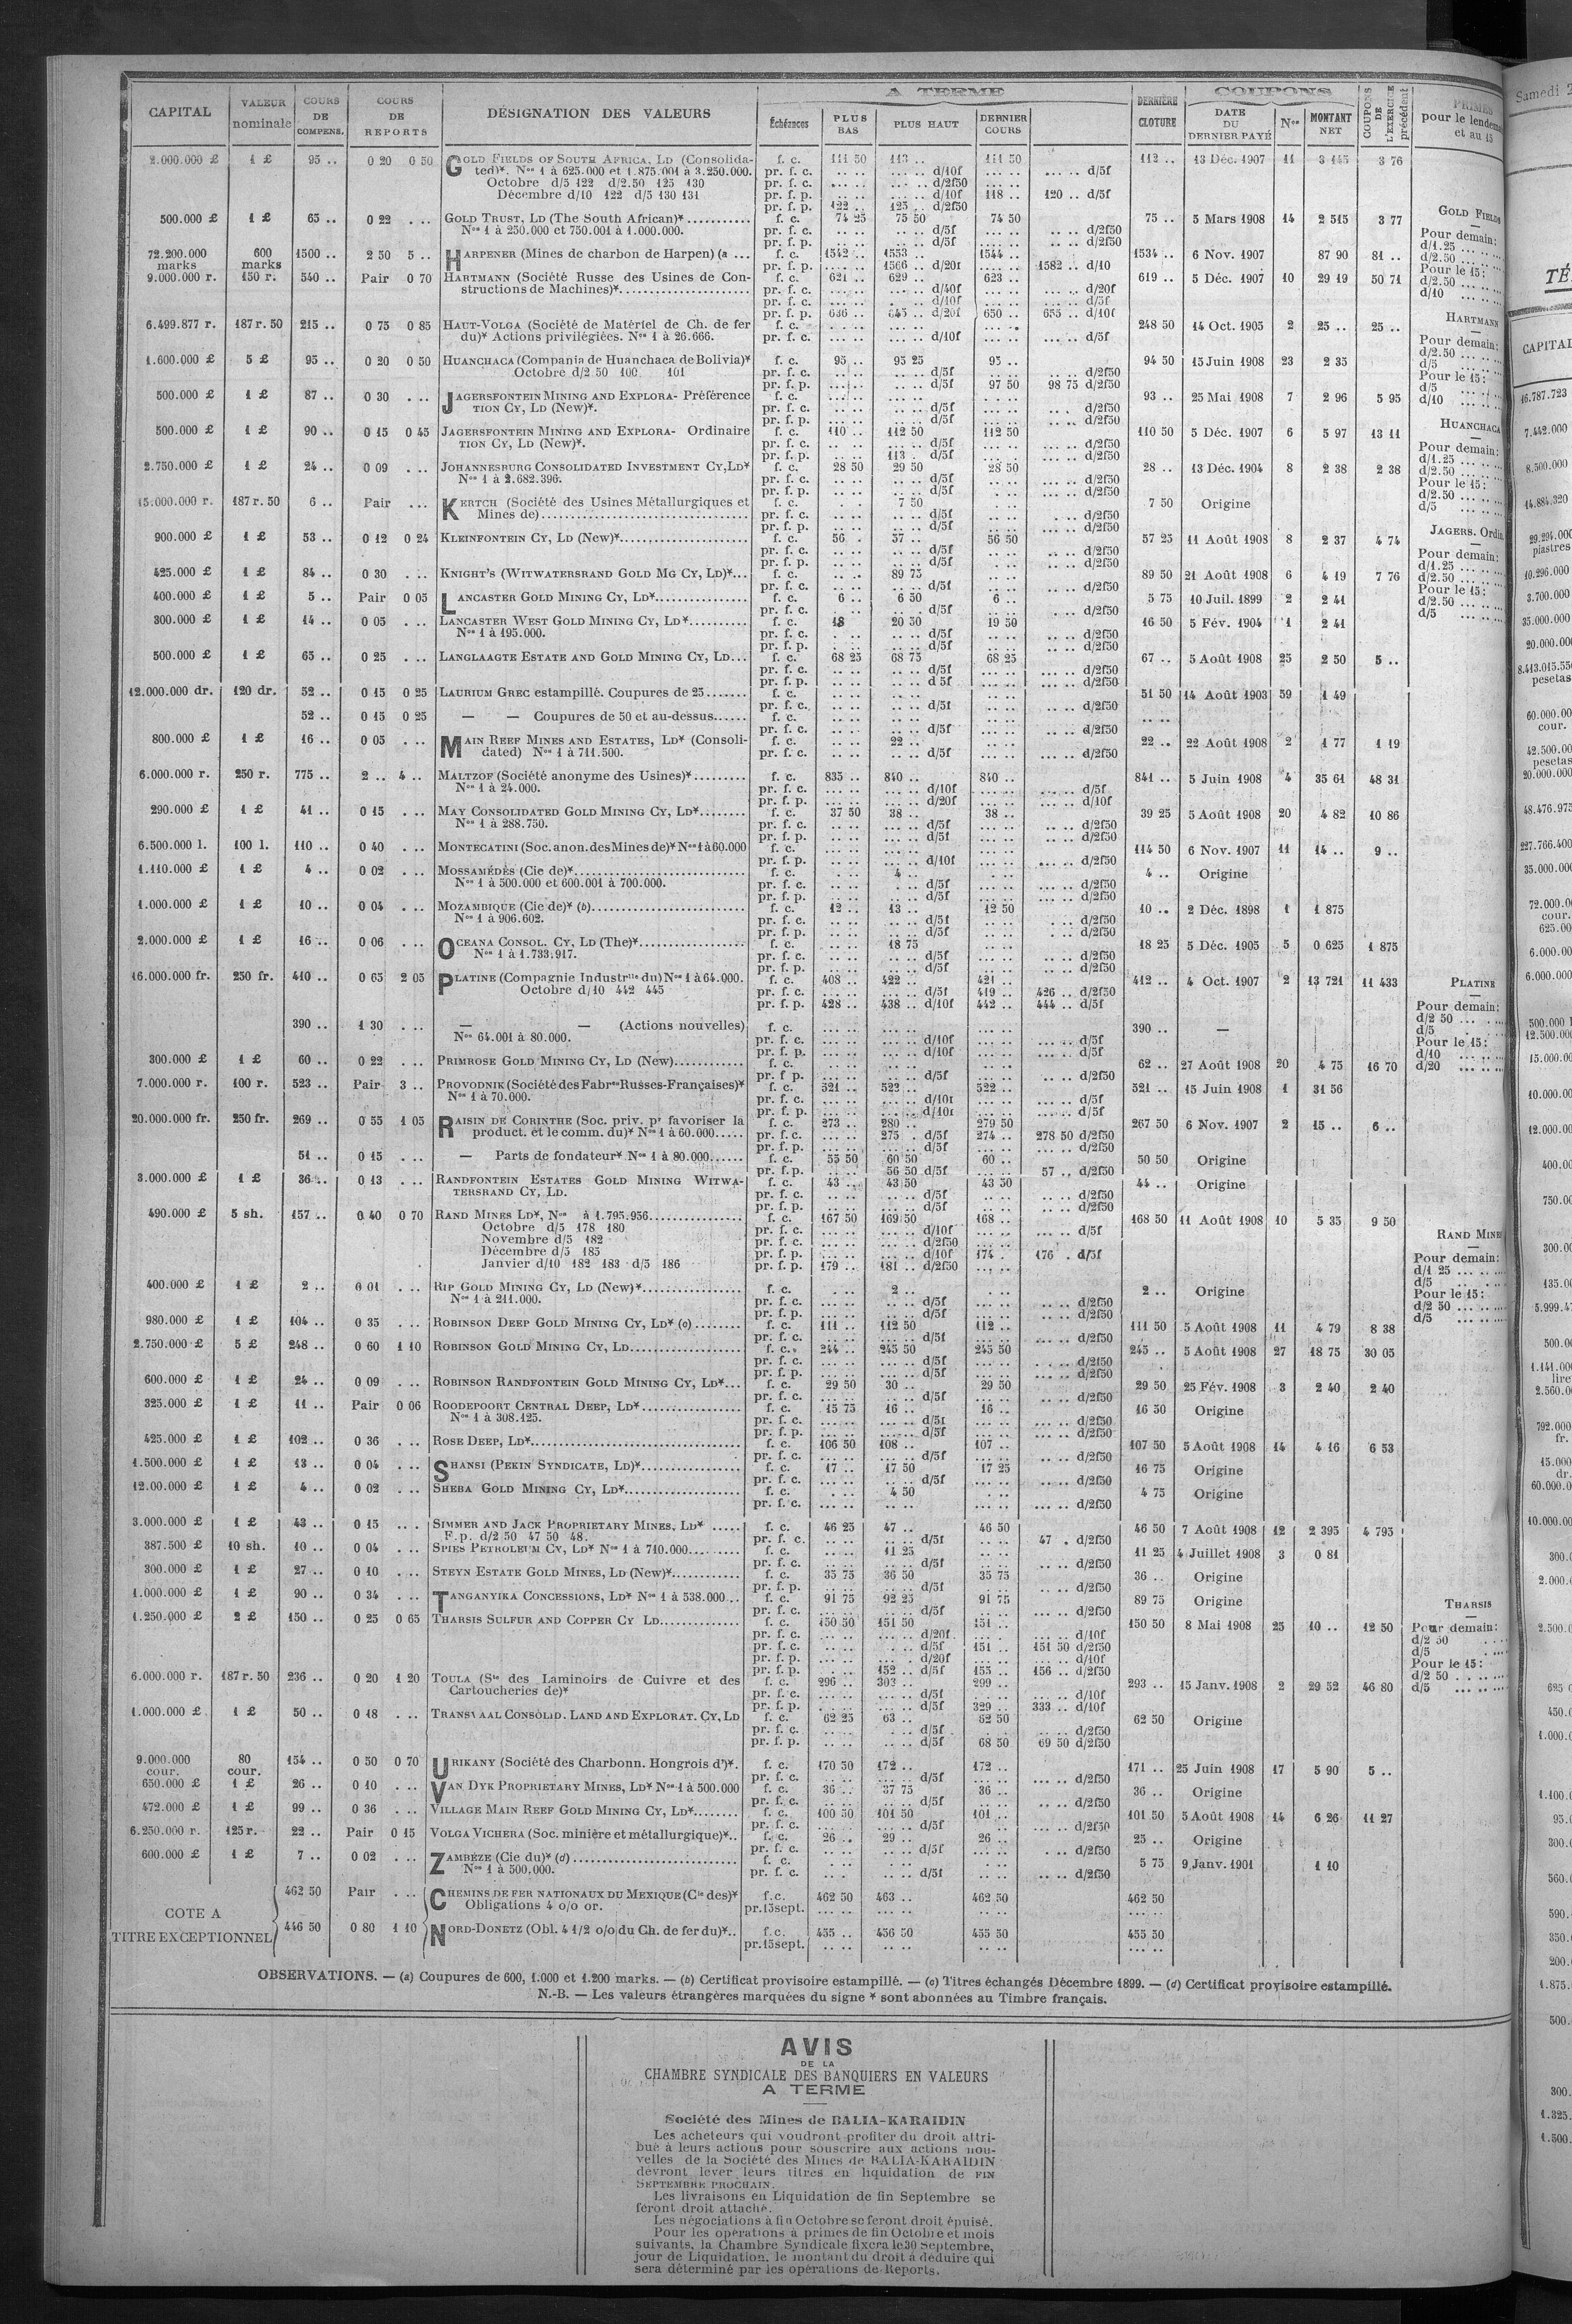 CAPITAL VALEUR nominale COURS DE COMPENS. COURS DE REPORTS DÉSIGNATION DES VALEURS A TERME Échéances PLUS BAS PLUS HAUT DERNIER COURS DERNIÈRE CLOTURE COUPONS DATE DU DERNIER PAYÉ Nos MONTANT NET COUPONS DE L'EXERCICE précédent PRIMES pour le et au 15
2.000.000 £ 1 £ 95 .. 0 20 0 50 GOLD FIELDS OF SOUTH AFRICA, LD (Consolida- f. c. 111 50 113 .. 111 50 112 .. 13 Déc. 1907 11 3 145 3 76
ted)*. Nos 1 à 625.000 et 1.875.001 à 3.250.000. pr. f. c. d/10f d/5f
Octobre d/5 122 d/2.50 125 130 pr. f. c. d/2f50
Décembre d/10 122 d/5 130 131 pr. f. p. d/10f 118 .. 120 .. d/5f
pr. f. p. 122 .. 125 .. d/2f50
500.000 £ 1 £ 65 .. 0 22 . .. GOLD TRUST, LD (The South African)* f. c. 74 25 75 50 74 50 75 .. 5 Mars 1908 14 2 515 3 77
Nos 1 à 250.000 et 750.001 à 1.000.000. pr. f. c. d/5f d/2f50
pr. f. p. d/5f d/2f50
72.200.000 marks 600 marks 1500 .. 2 50 5 .. HARPENER (Mines de charbon de Harpen) (a ... f. c. 1542 .. 1553 .. 1544 .. 1534 .. 6 Nov. 1907 87 90 81 ..
pr. f. p. 1566 .. d/20f 1582 .. d/10
9.000.000 r. 150 r. 540 .. Pair 0 70 HARTMANN (Société Russe des Usines de Con- f. c. 621 .. 629 .. 623 .. 619 .. 5 Déc. 1907 10 29 19 50 71
structions de Machines)* pr. f. c. d/40f d/20f
pr. f. c. d/10f d/5f
pr. f. p. 636 .. 645 .. d/20f 650 .. 655 .. d/10f
6.499.877 r. 187 r. 50 215 .. 0 75 0 85 HAUT-VOLGA (Société de Matériel de Ch. de fer f. c. 248 50 14 Oct. 1905 2 25 .. 25 ..
du)* Actions privilégiées. Nos 1 à 26.666. pr. f. c. d/10f d/5f
1.600.000 £ 5 £ 95 .. 0 20 0 50 HUANCHACA (Compania de Huanchaca de Bolivia)* f. c. 95 .. 95 25 95 .. 94 50 15 Juin 1908 23 2 35
Octobre d/2 50 100 101 pr. f. c. d/5f d/2f50
pr. f. p. d/5f 97 50 98 75 d/2f50
500.000 £ 1 £ 87 .. 0 30 . .. JAGERSFONTEIN MINING AND EXPLORA- Préférence f. c. 93 .. 25 Mai 1908 7 2 96 5 95
TION CY, LD (New)*. pr. f. c. d/5f d/2f50
pr. f. p. d/5f d/2f50
500.000 £ 1 £ 90 .. 0 15 0 45 JAGERSFONTEIN MINING AND EXPLORA- Ordinaire f. c. 110 .. 112 50 112 50 110 50 5 Déc. 1907 6 5 97 13 11
TION CY, LD (New)*. pr. f. c. d/5f d/2f50
pr. f. p. 113 . d/5f d/2f50
2.750.000 £ 1 £ 24 .. 0 09 . .. JOHANNESBURG CONSOLIDATED INVESTMENT CY, LD* f. c. 28 50 29 50 28 50 28 .. 13 Déc. 1904 8 2 38 2 38
Nos 1 à 2.682.396. pr. f. c. d/5f d/2f50
pr. f. p. d/5f d/2f50
15.000.000 r. 187 r. 50 6 .. Pair ... KERTCH (Société des Usines Métallurgiques et f. c. 7 50 7 50 Origine
Mines de) pr. f. c. d/5f d/2f50
pr. f. p. d/5f d/2f50
900.000 £ 1 £ 53 .. 0 12 0 24 KLEINFONTEIN CY, LD (New)* f. c. 56 . 57 .. 56 50 57 25 11 Août 1908 8 2 37 4 74
pr. f. c. d/5f d/2f50
pr. f. p. d/5f d/2f50
425.000 £ 1 £ 84 .. 0 30 . .. KNIGHT'S (WITWATERSRAND GOLD MG CY, LD)* f. c. 89 75 89 50 21 Août 1908 6 4 19 7 76
pr. f. c. d/5f d/2f50
400.000 £ 1 £ 5 .. Pair 0 05 LANCASTER GOLD MINING CY, LD* f. c. 6 .. 6 50 6 .. 5 75 10 Juil. 1899 2 2 41
pr. f. c. d/5f d/2f50
300.000 £ 1 £ 14 .. 0 05 . .. LANCASTER WEST GOLD MINING CY, LD* f. c. 18 20 50 19 50 16 50 5 Fév. 1904 1 2 41
Nos 1 à 195.000. pr. f. c. d/5f d/2f50
pr. f. p. d/5f d/2f50
500.000 £ 1 £ 65 .. 0 25 . .. LANGLAAGTE ESTATE AND GOLD MINING CY, LD f. c. 68 25 68 75 68 25 67 .. 5 Août 1908 25 2 50 5 ..
pr. f. c. d/5f d/2f50
pr. f. p. d 5f d/2f50
12.000.000 dr. 120 dr. 52 .. 0 15 0 25 LAURIUM GREC estampillé. Coupures de 25 f. c. 51 50 14 Août 1903 59 1 49
pr. f. c. d/5f d/2f50
52 .. 0 15 0 25 — — Coupures de 50 et au-dessus f. c.
pr. f. c. d/5f d/2f50
800.000 £ 1 £ 16 .. 0 05 . .. MAIN REEF MINES AND ESTATES, LD* (Consoli- f. c. 22 .. 22 .. 22 Août 1908 2 1 77 1 19
dated) Nos 1 à 711.500. pr. f. c. d/5f d/2f50
6.000.000 r. 250 r. 775 .. 2 .. 4 .. MALTZOF (Société anonyme des Usines)* f. c. 835 .. 840 .. 840 .. 841 .. 5 Juin 1908 4 35 61 48 31
Nos 1 à 24.000. pr. f. c. d/10f d/5f
pr. f. p. d/20f d/10f
290.000 £ 1 £ 41 .. 0 15 . .. MAY CONSOLIDATED GOLD MINING CY, LD* f. c. 37 50 38 .. 38 .. 39 25 5 Août 1908 20 4 82 10 86
Nos 1 à 288.750. pr. f. c. d/5f d/2f50
pr. f. p. d/5f d/2f50
6.500.000 l. 100 l. 110 .. 0 40 . .. MONTECATINI (Soc. anon. des Mines de)* Nos 1 à 60.000 f. c. 114 50 6 Nov. 1907 11 14 .. 9 ..
pr. f. p. d/10f d/2f50
1.110.000 £ 1 £ 4 .. 0 02 . .. MOSSAMÉDÈS (Cie de)* f. c. 4 .. 4 .. Origine
Nos 1 à 500.000 et 600.001 à 700.000. pr. f. c. d/5f d/2f50
pr. f. p. d/5f d/2f50
1.000.000 £ 1 £ 10 .. 0 04 . .. MOZAMBIQUE (Cie de)* (b) f. c. 12 .. 13 .. 12 50 10 .. 2 Déc. 1898 1 1 875
Nos 1 à 906.602. pr. f. c. d/5f d/2f50
pr. f. p. d/5f d/2f50
2.000.000 £ 1 £ 16 .. 0 06 . .. OCEANA CONSOL. CY, LD (The)* f. c. 18 75 18 25 5 Déc. 1905 5 0 625 1 875
Nos 1 à 1.733.917. pr. f. c. d/5f d/2f50
pr. f. p. d/5f d/2f50
16.000.000 fr. 250 fr. 410 .. 0 65 2 05 PLATINE (Compagnie Industrlle du) Nos 1 à 64.000. f. c. 408 .. 422 .. 421 .. 412 .. 4 Oct. 1907 2 13 721 11 433
Octobre d/10 442 445 pr. f. c. d/5f 419 .. 426 .. d/2f50
pr. f. p. 428 .. 438 .. d/10f 442 .. 444 .. d/5f
390 .. 1 30 . .. — — (Actions nouvelles) f. c. 390 .. —
Nos 64.001 à 80.000. pr. f. c. d/10f d/5f
pr. f. p. d/10f d/5f
300.000 £ 1 £ 60 .. 0 22 . .. PRIMROSE GOLD MINING CY, LD (New) f. c. 62 .. 27 Août 1908 20 4 75 16 70
pr. f p. d/5f d/2f50
7.000.000 r. 100 r. 523 .. Pair 3 .. PROVODNIK (Société des Fabres Russes-Françaises)* f. c. 521 .. 523 .. 522 .. 521 .. 15 Juin 1908 1 31 56
Nos 1 à 70.000. pr. f. c. d/10f d/5f
pr. f. p. d/10f d/5f
20.000.000 fr. 250 fr. 269 .. 0 55 1 05 RAISIN DE CORINTHE (Soc. priv. pr favoriser la f. c. 273 .. 280 .. 279 50 267 50 6 Nov. 1907 2 15 .. 6 ..
product. et le comm. du)* Nos 1 à 60.000 pr. f. c. 275 . d/5f 274 .. 278 50 d/2f50
pr. f. p. d/5f d/2f50
51 .. 0 15 . .. — Parts de fondateur* Nos 1 à 80.000 f. c. 55 50 60 50 60 .. 50 50 Origine
pr. f. p. 56 50 d/5f 57 .. d/2f50
3.000.000 £ 1 £ 36 .. 0 13 . .. RANDFONTEIN ESTATES GOLD MINING WITWA- f. c. 43 .. 43 50 43 50 44 .. Origine
TERSRAND CY, LD. pr. f. c. d/5f d/2f50
pr. f. p. d/5f d/2f50
490.000 £ 5 sh. 157 .. 0 40 0 70 RAND MINES LD*, Nos à 1.795.956 f. c. 167 50 169 50 168 .. 168 50 11 Août 1908 10 5 35 9 50
Octobre d/5 178 180 pr. f. c. d/10f d/5f
Novembre d/5 182 pr. f. c. d/2f50
Décembre d/5 185 pr. f. p. d/10f 174 . 176 . d/5f
Janvier d/10 182 183 d/5 186 pr. f. p. 179 .. 181 .. d/2f50
400.000 £ 1 £ 2 .. 0 01 . .. RIP GOLD MINING CY, LD (New)* f. c. 2 .. 2 .. Origine
Nos 1 à 211.000. pr. f. c. d/5f d/2f50
pr. f. p. d/5f d/2f50
980.000 £ 1 £ 104 .. 0 35 . .. ROBINSON DEEP GOLD MINING CY, LD* (c) f. c. 111 .. 112 50 112 .. 111 50 5 Août 1908 11 4 79 8 38
pr. f. c. d/5f d/2f50
2.750.000 £ 5 £ 248 .. 0 60 1 10 ROBINSON GOLD MINING CY, LD f. c. 244 .. 245 50 245 50 245 .. 5 Août 1908 27 18 75 30 05
pr. f. c. d/5f d/2f50
pr. f. p. d/5f d/2f50
600.000 £ 1 £ 24 .. 0 09 . .. ROBINSON RANDFONTEIN GOLD MINING CY, LD* f. c. 29 50 30 .. 29 50 29 50 25 Fév. 1908 3 2 40 2 40
pr. f. c. d/5f d/2f50
325.000 £ 1 £ 11 .. Pair 0 06 ROODEPOORT CENTRAL DEEP, LD* f. c. 15 75 16 .. 16 .. 16 50 Origine
Nos 1 à 308.125. pr. f. c. d/5f d/2f50
pr. f. p. d/5f d/2f50
425.000 £ 1 £ 102 .. 0 36 . .. ROSE DEEP, LD* f. c. 106 50 108 .. 107 .. 107 50 5 Août 1908 14 4 16 6 53
pr. f. c. d/5f d/2f50
1.500.000 £ 1 £ 13 .. 0 04 . .. SHANSI (PEKIN SYNDICATE, LD)* f. c. 17 .. 17 50 17 25 16 75 Origine
pr. f. c. d/5f d/2f50
12.00.000 £ 1 £ 4 .. 0 02 . .. SHEBA GOLD MINING CY, LD* f. c. 4 50 4 75 Origine
pr. f. c. d/2f50
3.000.000 £ 1 £ 43 .. 0 15 . .. SIMMER AND JACK PROPRIETARY MINES, LD* f. c. 46 25 47 .. 46 50 46 50 7 Août 1908 12 2 395 4 795
F. p. d/2 50 47 50 48. pr. f. c. d/5f 47 . d/2f50
387.500 £ 10 sh. 10 .. 0 04 . .. SPIES PETROLEUM CY, LD* Nos 1 à 710.000 f. c. 11 25 11 25 4 Juillet 1908 3 0 81
pr. f. c. d/5f d/2f50
300.000 £ 1 £ 27 .. 0 10 . .. STEYN ESTATE GOLD MINES, LD (New)* f. c. 35 75 36 50 35 75 36 .. Origine
pr. f. p. d/5f d/2f50
1.000.000 £ 1 £ 90 .. 0 34 . .. TANGANYIKA CONCESSIONS, LD* Nos 1 à 538.000 f. c. 91 75 92 25 91 75 89 75 Origine
pr. f. c. d/5f d/2f50
1.250.000 £ 2 £ 150 .. 0 25 0 65 THARSIS SULFUR AND COPPER CY LD f. c. 150 50 151 50 151 .. 150 50 8 Mai 1908 25 10 .. 12 50
pr. f. c. d/20f d/10f
pr. f. c. d/5f 151 .. 151 50 d/2f50
pr. f. p. d/20f d/10f
pr. f. p. 152 .. d/5f 155 .. 156 .. d/2f50
6.000.000 r. 187 r. 50 236 .. 0 20 1 20 TOULA (Sté des Laminoirs de Cuivre et des f. c. 296 .. 303 .. 299 .. 293 .. 15 Janv. 1908 2 29 52 46 80
Cartoucheries de)* pr. f. c. d/5f d/10f
pr. f. p. d/5f 329 .. 333 .. d/10f
1.000.000 £ 1 £ 50 .. 0 18 . .. TRANSVAAL CONSOLID. LAND AND EXPLORAT. CY, LD f. c. 62 25 63 .. 62 50 62 50 Origine
pr. f. c. d/5f d/2f50
pr. f. p. d/5f 68 50 69 50 d/2f50
9.000.000 cour. 80 cour. 154 .. 0 50 0 70 URIKANY (Société des Charbonn. Hongrois d')*. f. c. 170 50 172 .. 172 .. 171 .. 25 Juin 1908 17 5 90 5 ..
pr. f. c. d/5f d/2f50
650.000 £ 1 £ 26 .. 0 10 . .. VAN DYK PROPRIETARY MINES, LD* Nos 1 à 500.000 f. c. 36 .. 37 75 36 .. 36 .. Origine
pr. f. c. d/5f d/2f50
472.000 £ 1 £ 99 .. 0 36 . .. VILLAGE MAIN REEF GOLD MINING CY, LD* f. c. 100 50 101 50 101 .. 101 50 5 Août 1908 14 6 26 11 27
pr. f. c. d/5f d/2f50
6.250.000 r. 125 r. 22 .. Pair 0 15 VOLGA VICHERA (Soc. minière et métallurgique)* f. c. 26 .. 29 .. 26 .. 25 .. Origine
pr. f. c. d/5f d/2f50
600.000 £ 1 £ 7 .. 0 02 . .. ZAMBÈZE (Cie du)* (d) f. c. 5 75 9 Janv. 1901 1 10
Nos 1 à 500.000. pr. f. c. d/5f d/2f50
COTE A TITRE EXCEPTIONNEL
462 50 Pair . .. CHEMINS DE FER NATIONAUX DU MEXIQUE (Cie des)* f. c. 462 50 463 .. 462 50 462 50
Obligations 4 o/o or. pr. 15 sept.
446 50 0 80 1 10 NORD-DONETZ (Obl. 4 1/2 o/o du Ch. de fer du)*.. f. c. 455 .. 456 50 455 50 455 50
pr. 15 sept.
GOLD FIELDS
Pour demain:
d/1.25
d/2.50
Pour le 15:
d/2.50
d/10
HARTMANN
Pour demain:
d/2.50
d/5
Pour le 15:
d/5
d/10
HUANCHACA
Pour demain:
d/1.25
d/2.50
Pour le 15:
d/2.50
d/5
JAGERS. Ordin
Pour demain:
d/1.25
d/2.50
Pour le 15:
d/2.50
d/5
PLATINE
Pour demain:
d/2 50
d/5
Pour le 15:
d/10
d/20
RAND MINES
Pour demain:
d/1 25
d/5
Pour le 15:
d/2 50
d/5
THARSIS
Pour demain:
d/2 50
d/5
Pour le 15:
d/2 50
d/5
OBSERVATIONS. — (a) Coupures de 600, 1.000 et 1.200 marks. — (b) Certificat provisoire estampillé. — (c) Titres échangés Décembre 1899. — (d) Certificat provisoire estampillé.
N.-B. — Les valeurs étrangères marquées du signe * sont abonnées au Timbre français.
AVIS
DE LA
CHAMBRE SYNDICALE DES BANQUIERS EN VALEURS
A TERME
Société des Mines de BALIA-KARAIDIN
Les acheteurs qui voudront profiter du droit attri-
bué à leurs actions pour souscrire aux actions nou-
velles de la Société des Mines de BALIA-KARAIDIN
devront lever leurs titres en liquidation de FIN
SEPTEMBRE PROCHAIN.
Les livraisons en Liquidation de fin Septembre se
feront droit attaché.
Les négociations à fin Octobre se feront droit épuisé.
Pour les opérations à primes de fin Octobre et mois
suivants, la Chambre Syndicale fixera le 30 Septembre,
jour de Liquidation, le montant du droit à déduire qui
sera déterminé par les opérations de Reports.
Samedi
CAPITAL
16.787.723
7.442.000
8.500.000
14.884.320
piastres
10.296.000
3.700.000
35.000.000
pesetas
cour.
pesetas
20.000.000